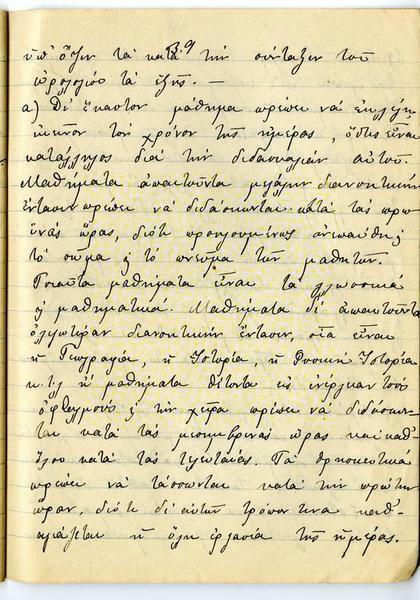 39
ὑπ' ὄψιν τὰ κατὰ τὴν σύνταξιν τοῦ
ὡρολογίου τὰ ἑξῆς. —
α) Δι' ἕκαστον μάθημα πρέπει νὰ ἐκλέγη
ἐκεῖνον τὸν χρόνον τῆς ἡμέρας, ὅστις εἶναι
κατάλληλος διὰ τὴν διδασκαλίαν αὐτοῦ.
Μαθήματα ἀπαιτοῦντα μεγάλην διανοητικὴν
ἔντασιν πρέπει νὰ διδάσκωνται κατὰ τὰς πρω
ϊνὰς ὥρας, διότι προηγουμένως ἀνεπαύθη
τὸ σῶμα κ τὸ πνεῦμα τῶν μαθητῶν.
Τοιαῦτα μαθήματα εἶναι τὰ γλωσσικὰ
κ μαθηματικά. Μαθήματα δὲ ἀπαιτοῦντα
ὀλιγωτέραν διανοητικὴν ἔντασιν, οἷα εἶναι
ἡ Γεωγραφία, ἡ Ἱστορία, ἡ Φυσικὴ Ἱστορία
κ.τ.λ ἢ μαθήματα θέτοντα εἰς ἐνέργειαν τοὺς
ὀφθαλμοὺς κ τὴν χεῖρα πρέπει νὰ διδάσκων-
ται κατὰ τὰς μεσημβρινὰς ὥρας καὶ καθ'
ὅλου κατὰ τὰς τελευταίας. Τὰ θρησκευτικὰ
πρέπει νὰ τάσσωνται κατὰ τὴν πρώτην
ὥραν, διότι δι' αὐτῶν τρόπον τινα καθ-
αγιάζεται ἡ ὅλη ἐργασία τῆς ἡμέρας.